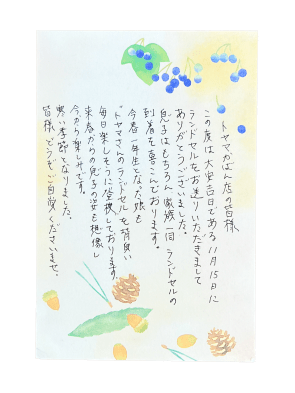 トヤマかばん店の皆様
この度は大安吉日である11月15日に
ランドセルをお送りいただきまして
ありがとうございました。
息子はもちろん家族一同ランドセルの
到着を喜こんでおります。
今春一年生となった娘も
"トヤマさんのランドセル"を背負い
毎日楽しそうに登校しております。
来春からの息子の姿も想像し
今から楽しみです。
寒い季節となりました。
皆様どうぞご自愛くださいませ。